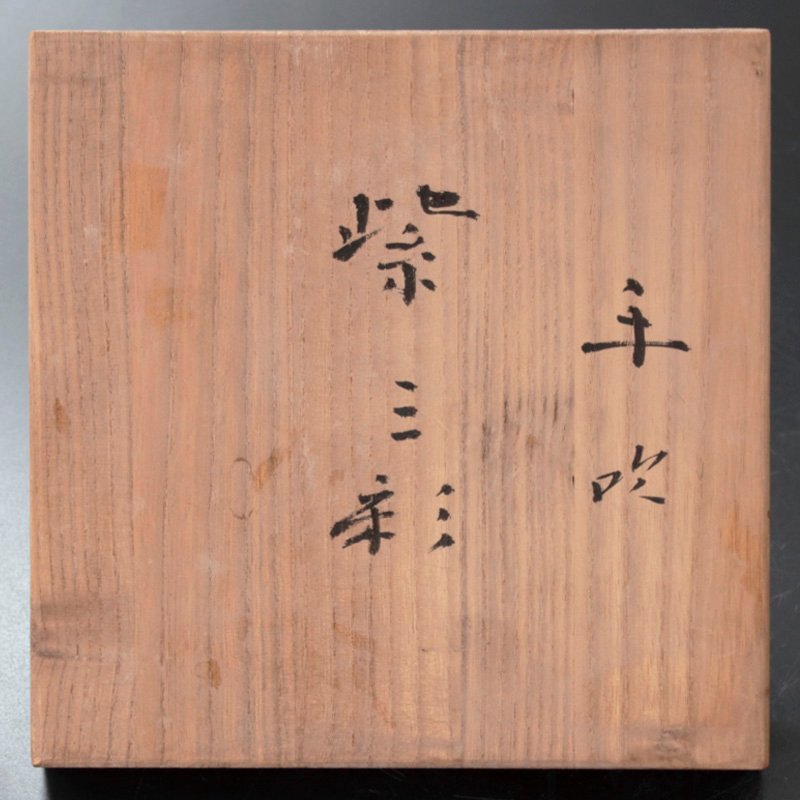 手吹
紫三彩